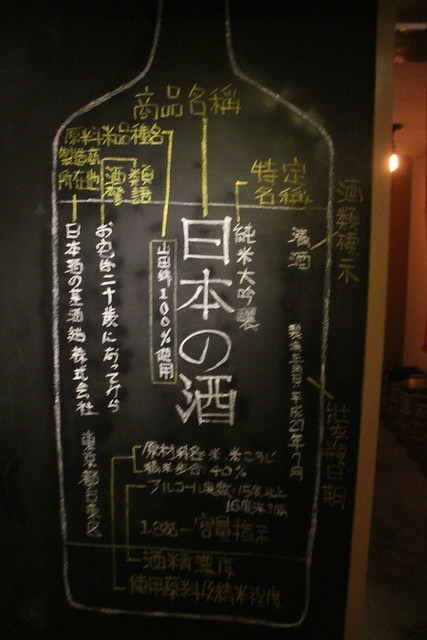 商品名稱
原料米品種名
製造商
所在地
酒類
警語
特定
名稱
酒類標示
清酒
純米大吟醸
日本の酒
山田錦100%使用
お宅は二十歳になってから
日本酒の
株式会社
東京都
製造年月日:平成27年
原材料名:米、米こうじ
精米歩合:40%
アルコール度数:15度以上
16度未満
1.8
容量指示
酒精濃度
使用原料及精米程度